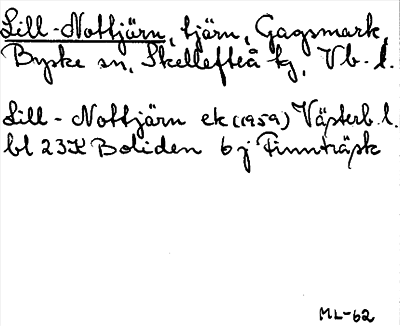 Lill-Nottjärn, tjärn, Gagsmark,
Byske sn, Skellefteå tg, Vb. l.
Lill-Nottjärn ek (1959) Västerb. l.
bl 23K Boliden 6j Finnträsk
ML-62